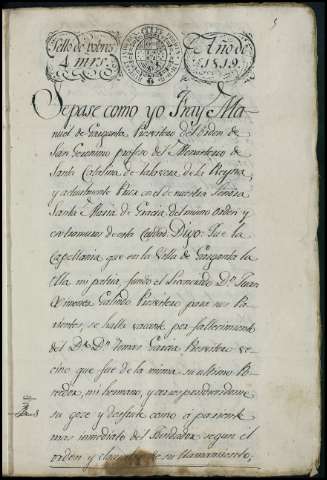 Sello de pobres
4 mrs.
Año de
1819.
Sepase como yo Fray Ma-
nuel de Garganta Presvitero del orden de
San Geronimo profeso del Monasterio de
Santa Catalina de talavera de la Reyna
y actualmente Prior en el de nuestra Señora
Santa Maria de Gracia del mismo orden y
Digo: Que la
Capellania que en la Villa de Garganta la
Olla mi patria, fundó el Licenciado Dn. Juan
Ximenez Galindo Presvitero para sus Pa-
rientes, se halla vacante por fallecimiento
del Dr. Dn. Tomas Garcia Presvitero ve-
cino que fue de la misma su ultimo Po-
seedor, mi hermano, y correspondiendome
su goze y disfrute como á pariente
mas inmediato del Fundador, segun el
orden y clausulas de su llamamiento,